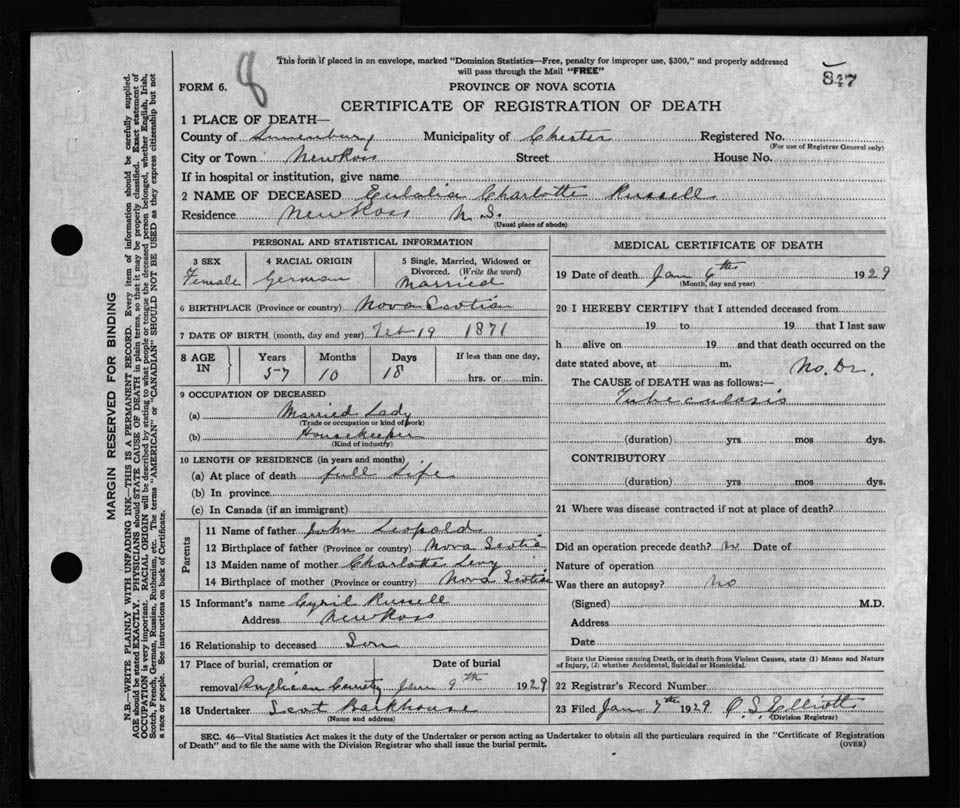 This form if placed in an envelope, marked "Dominion Statistics—Free, penalty for improper use, $300," and properly addressed
will pass through the Mail "FREE"
8
847
FORM 6.
PROVINCE OF NOVA SCOTIA
CERTIFICATE OF REGISTRATION OF DEATH
1 PLACE OF DEATH—
County of Lunenburg Municipality of Chester Registered No.
(For use of Registrar General only)
City or Town New Ross Street House No.
If in hospital or institution, give name
2 NAME OF DECEASED Eulalia Charlotte Russell
Residence New Ross N. S.
(Usual place of abode)
PERSONAL AND STATISTICAL INFORMATION
3 SEX 4 RACIAL ORIGIN 5 Single, Married, Widowed or
Divorced. (Write the word)
Female German Married
6 BIRTHPLACE (Province or country) Nova Scotia
7 DATE OF BIRTH (month, day and year) Feb 19 1871
8 AGE IN Years Months Days If less than one day,
57 10 18 hrs. or min.
9 OCCUPATION OF DECEASED
(a) Married Lady
(Trade or occupation or kind of work)
(b) Housekeeper
(Kind of industry)
10 LENGTH OF RESIDENCE (in years and months)
(a) At place of death full life
(b) In province
(c) In Canada (if an immigrant)
Parents
11 Name of father John Leopold
12 Birthplace of father (Province or country) Nova Scotia
13 Maiden name of mother Charlotte Levy
14 Birthplace of mother (Province or country) Nova Scotia
15 Informant's name Cyril Russell
Address New Ross
16 Relationship to deceased Son
17 Place of burial, cremation or Date of burial
removal Anglican Jan 9th 1929
18 Undertaker Scot Barkhouse
(Name and address)
MEDICAL CERTIFICATE OF DEATH
19 Date of death Jan 6th 1929
(Month, day and year)
20 I HEREBY CERTIFY that I attended deceased from
19 to 19 that I last saw
h alive on 19 and that death occurred on the
date stated above, at m. No. Dr.
The CAUSE of DEATH was as follows:—
Tubeculosis
(duration) yrs mos dys.
CONTRIBUTORY
(duration) yrs mos dys.
21 Where was disease contracted if not at place of death?
Did an operation precede death? no Date of
Nature of operation
Was there an autopsy? no
(Signed) M.D.
Address
Date
State the Disease causing Death, or in death from Violent Causes, state (1) Means and Nature
of Injury, (2) whether Accidental, Suicidal or Homicidal.
22 Registrar's Record Number
23 Filed Jan 7th 1929 O. S. Elliott
(Division Registrar)
SEC. 46—Vital Statistics Act makes it the duty of the Undertaker or person acting as Undertaker to obtain all the particulars required in the "Certificate of Registration
of Death" and to file the same with the Division Registrar who shall issue the burial permit.
(OVER)
MARGIN RESERVED FOR BINDING
N.B.—WRITE PLAINLY WITH UNFADING INK—THIS IS A PERMANENT RECORD. Every item of information should be carefully supplied.
AGE should be stated EXACTLY. PHYSICIANS should STATE CAUSE OF DEATH in plain terms, so that it may be properly classified. Exact statement of
OCCUPATION is very important. RACIAL ORIGIN will be described by stating to what people or tongue the deceased person belonged, whether English, Irish,
Scotch, French, German, Russian, Ruthenian, etc. The terms "AMERICAN" or "CANADIAN" SHOULD NOT BE USED as they express citizenship but not
a race or people. See instructions on back of Certificate.